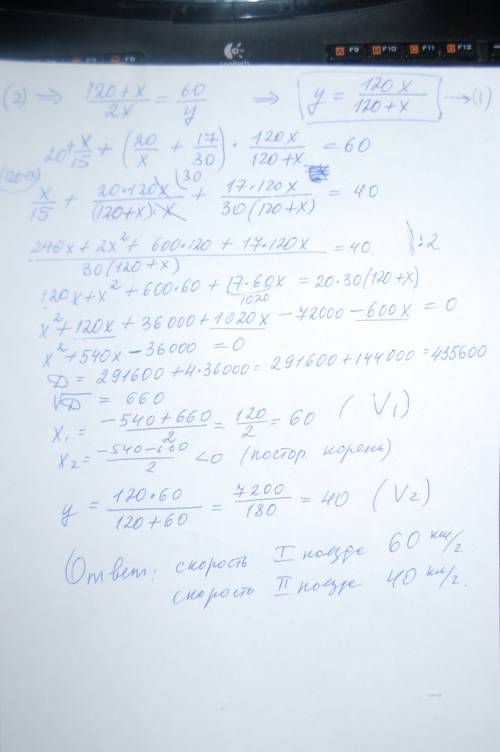 F9 F10 F11 F12
Logitech
(2) ⇒ (120+x)/(2x) = 60/y ⇒ y = 120x/(120+x) → (1)
20 + x/15 + (20/x + 17/30) · 120x/(120+x) = 60
(120+x) 30
x/15 + 20·120x/((120+x)·x) + 17·120x/(30(120+x)) = 40
(240x + 2x² + 600·120 + 17·120x)/(30(120+x)) = 40 |:2
120x + x² + 600·60 + 17·60x = 20·30(120+x)
1020
x² + 120x + 36000 + 1020x − 72000 − 600x = 0
x² + 540x − 36000 = 0
D = 291600 + 4·36000 = 291600 + 144000 = 435600
√D = 660
x₁ = (−540+660)/2 = 120/2 = 60 (V₁)
x₂ = (−540−660)/2 < 0 (постор. корень)
y = 120·60/(120+60) = 7200/180 = 40 (V₂)
Ответ: скорость I поезда 60 км/г.
скорость II поезда 40 км/г.